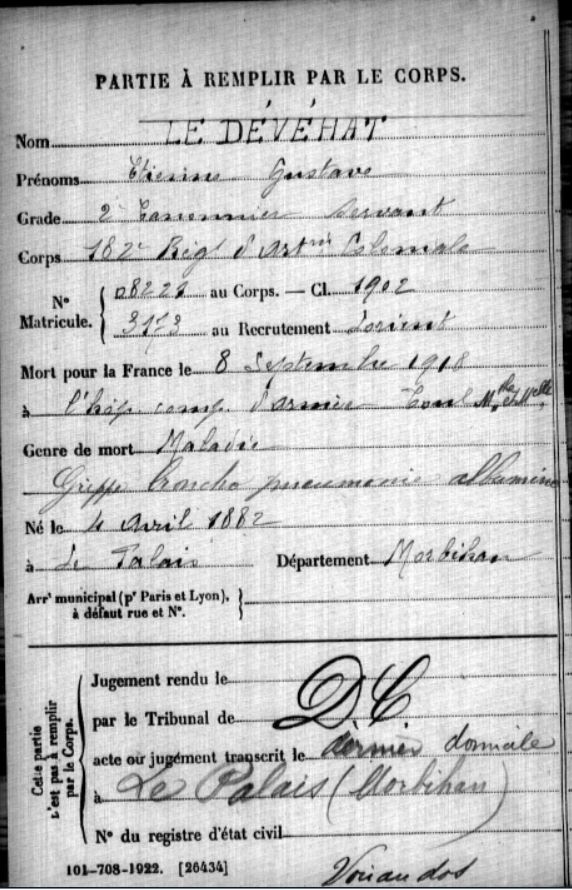 PARTIE À REMPLIR PAR LE CORPS.
Nom LE DÉVÉHAT
Prénoms Etienne Gustave
Grade 2e Canonnier servant
Corps 182e Régt d'Artrie Coloniale
N° Matricule. { 08221 au Corps. — Cl. 1902
3173 au Recrutement Lorient
Mort pour la France le 8 Septembre 1918
à l'hôp. comp. d'armée Toul M. et Melle
Genre de mort Maladie
Grippe broncho pneumonie albumine
Né le 4 Avril 1882
à Le Palais Département Morbihan
Arrt municipal (pr Paris et Lyon), à défaut rue et N°. }
Cette partie n'est pas à remplir par le Corps.
Jugement rendu le
par le Tribunal de DC
acte ou jugement transcrit le dernier domicile
à Le Palais (Morbihan)
N° du registre d'état civil
101-708-1922. [26434] Voir au dos